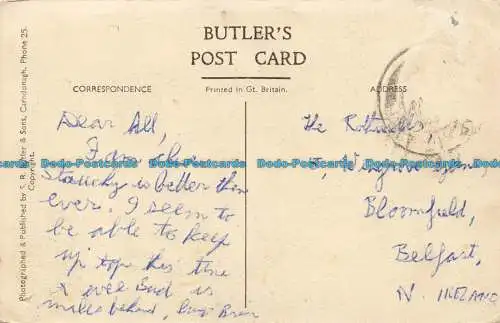 BUTLER'S
POST CARD
CORRESPONDENCE
Printed in Gt. Britain.
ADDRESS
Photographed & Published by S. R. Butler & Sons, Carndonagh. Phone 25.
Copyright.
Dear All,
I
is better than
ever. I seem to
be able to keep
up top this time
is
miles behind,
The
Bloomfield,
Belfast,
N. IRELAND
Dodo-Postcards Dodo-Postcards Dodo-Postcards Dodo-Postcards Dodo-Postcards